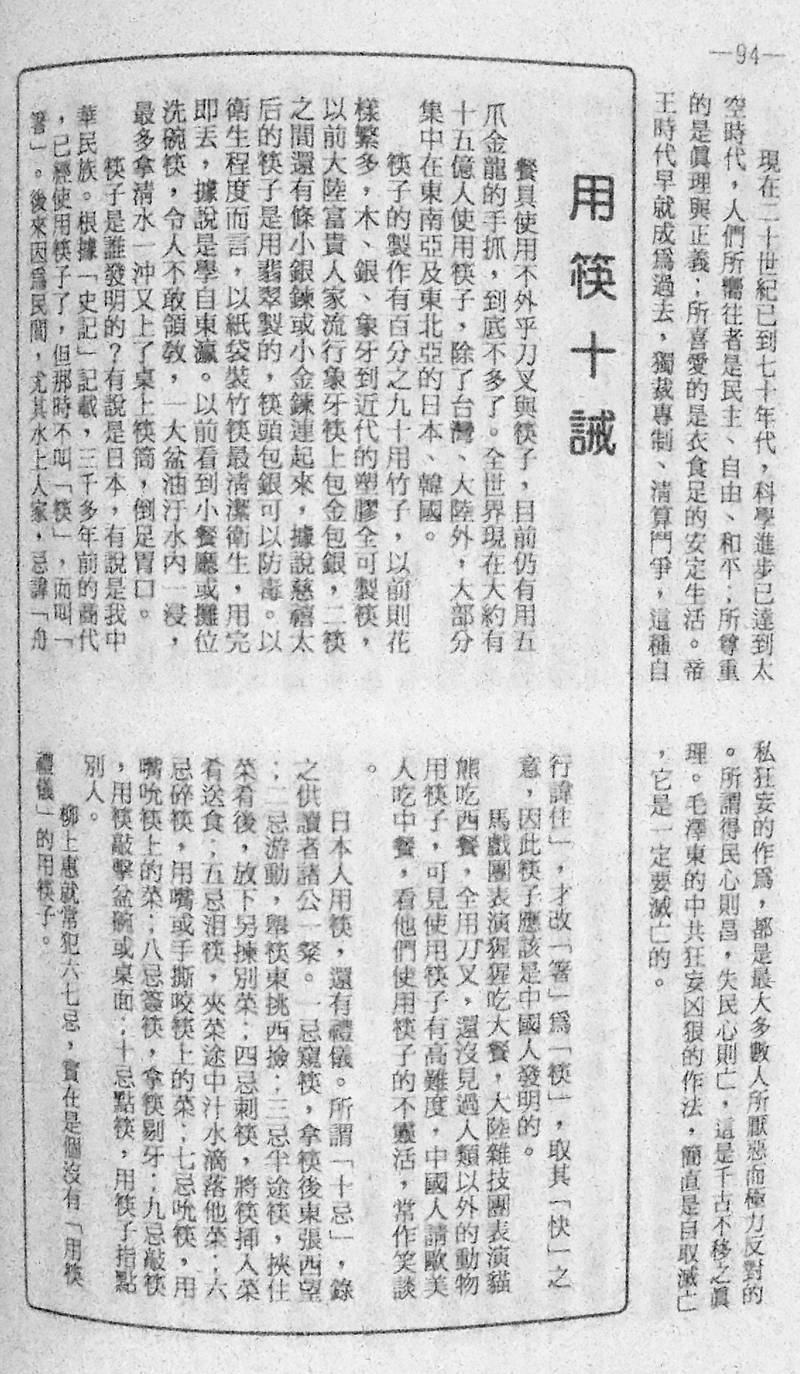 —94—
　　現在二十世紀已到七十年代，科學進步已達到太
空時代，人們所嚮往者是民主、自由、和平；所尊重
的是眞理與正義；所喜愛的是衣食足的安定生活。帝
王時代早就成爲過去，獨裁專制、清算鬥爭，這種自
私狂妄的作爲，都是最大多數人所厭惡而極力反對的
。所謂得民心則昌，失民心則亡，這是千古不移之眞
理。毛澤東的中共狂妄凶狠的作法，簡直是自取滅亡
，它是一定要滅亡的。
用筷十誡
　　餐具使用不外乎刀叉與筷子，目前仍有用五
爪金龍的手抓，到底不多了。全世界現在大約有
十五億人使用筷子，除了台灣、大陸外，大部分
集中在東南亞及東北亞的日本、韓國。
　　筷子的製作有百分之九十用竹子，以前則花
樣繁多，木、銀、象牙到近代的塑膠全可製筷，
以前大陸富貴人家流行象牙筷上包金包銀，二筷
之間還有條小銀鍊或小金鍊連起來，據說慈禧太
后的筷子是用翡翠製的，筷頭包銀可以防毒。以
衛生程度而言，以紙袋裝竹筷最清潔衛生，用完
即丟，據說是學自東瀛。以前看到小餐廳或攤位
洗碗筷，令人不敢領敎，一大盆油汙水內一浸，
最多拿清水一沖又上了桌上筷筒，倒足胃口。
　　筷子是誰發明的？有說是日本，有說是我中
華民族。根據「史記」記載，三千多年前的商代
，已經使用筷子了，但那時不叫「筷」，而叫「
箸」。後來因爲民間，尤其水上人家，忌諱「舟
行諱住」，才改「箸」爲「筷」，取其「快」之
意，因此筷子應該是中國人發明的。
　　馬戲團表演猩猩吃大餐，大陸雜技團表演貓
熊吃西餐，全用刀叉，還沒見過人類以外的動物
用筷子，可見使用筷子有高難度，中國人請歐美
人吃中餐，看他們使用筷子的不靈活，常作笑談
。
　　日本人用筷，還有禮儀。所謂「十忌」，錄
之供讀者諸公一粲。一忌窺筷，拿筷後東張西望
；二忌游動，舉筷東挑西撿；三忌半途筷，挾住
菜肴後，放下另揀別菜；四忌刺筷，將筷挿入菜
肴送食；五忌泪筷，夾菜途中汁水滴落他菜；六
忌碎筷，用嘴或手撕咬筷上的菜；七忌吮筷，用
嘴吮筷上的菜；八忌簽筷，拿筷剔牙；九忌敲筷
，用筷敲擊盆碗或桌面；十忌點筷，用筷子指點
別人。
　　柳上惠就常犯六七忌，實在是個沒有「用筷
禮儀」的用筷子。